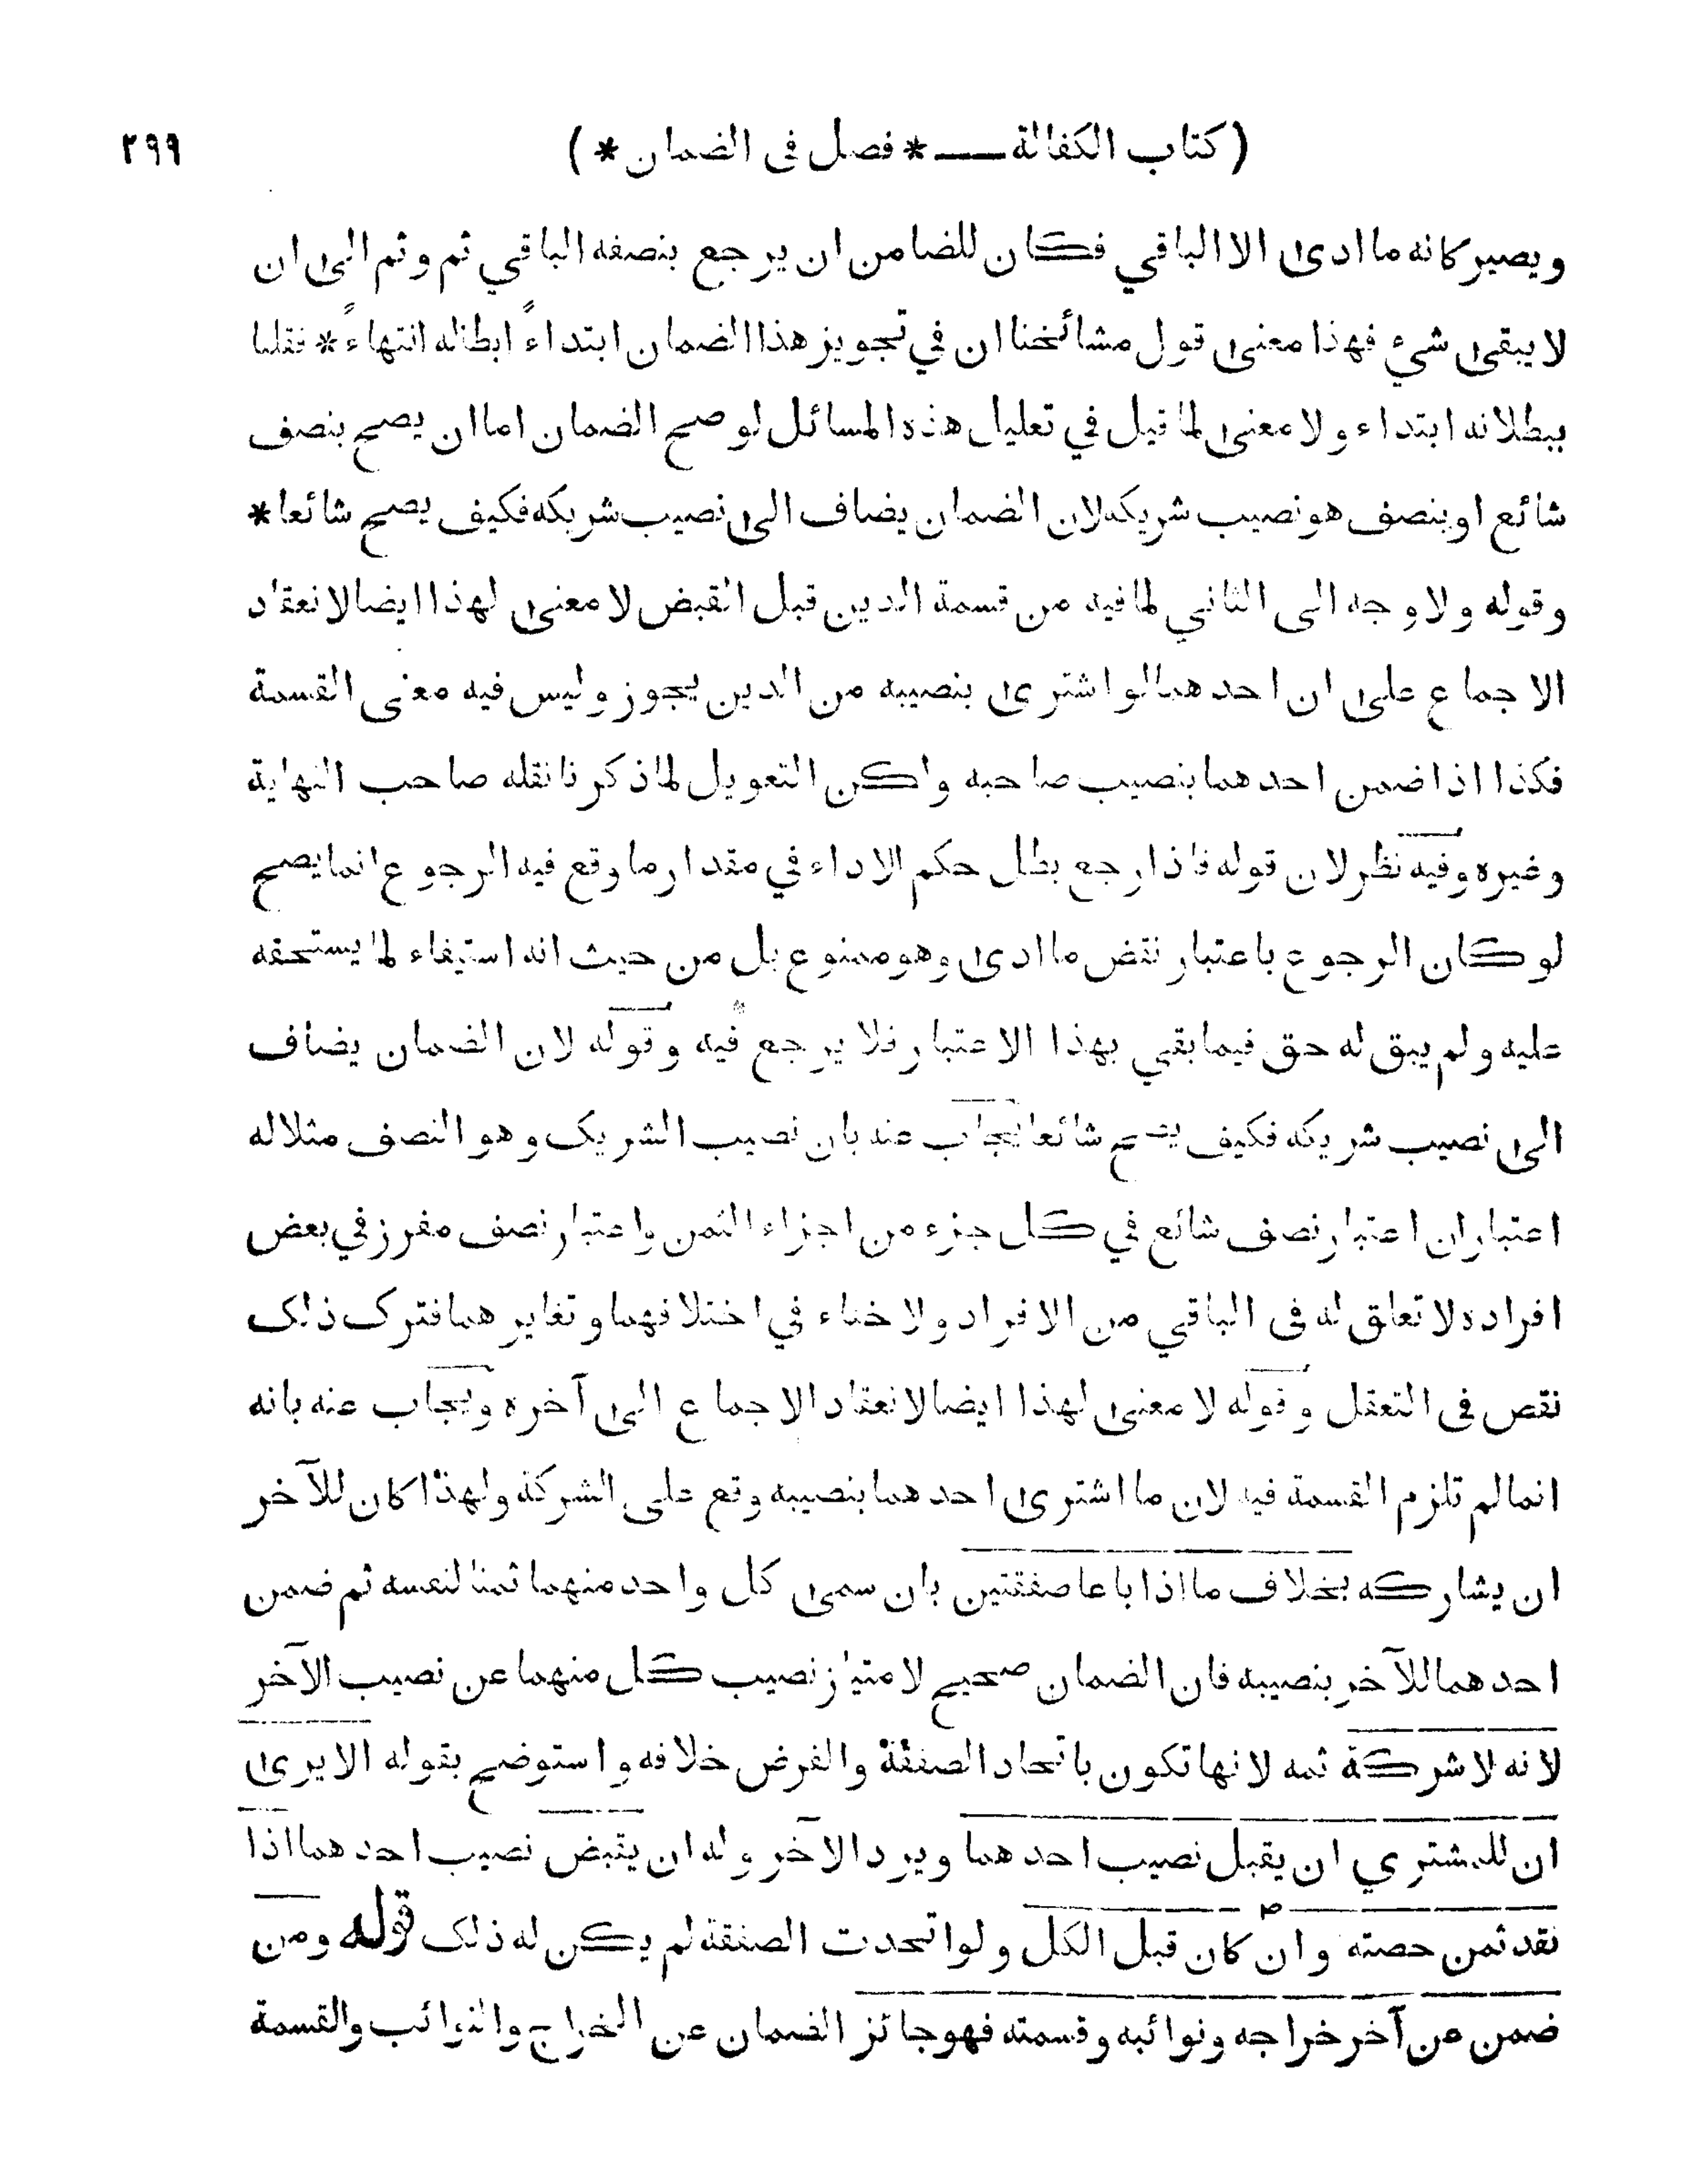 (كتاب الكفالة — * فصل فى الضمان *) ٢٩٩
ويصير كانه ما ادى الا الباقي فكان للضامن ان يرجع بنصفه الباقي ثم وثم الى ان
لا يبقى شيء فهذا معنى قول مشائخنا ان في تجويز هذا الضمان ابتداءً ابطاله انتهاءً * فقلنا
ببطلانه ابتداء ولا معنى لما قيل في تعليل هذه المسائل لو صح الضمان اما ان يصح بنصف
شائع او بنصف هو نصيب شريكه لان الضمان يضاف الى نصيب شريكه فكيف يصح شائعا *
وقوله ولا وجه الى الثاني لما فيه من قسمة الدين قبل القبض لا معنى لهذا ايضا لانعقاد
الاجماع على ان احدهما لو اشترى بنصيبه من الدين يجوز وليس فيه معنى القسمة
فكذا اذا ضمن احدهما بنصيب صاحبه ولكن التعويل لما ذكرنا نقله صاحب النهاية
وغيره وفيه نظر لان قوله فاذا رجع بطل حكم الاداء في مقدار ما وقع فيه الرجوع انما يصح
لو كان الرجوع باعتبار نقض ما ادى وهو ممنوع بل من حيث انه استيفاء لما يستحقه
عليه ولم يبق له حق فيما بقي بهذا الاعتبار فلا يرجع فيه وقوله لان الضمان يضاف
الى نصيب شريكه فكيف يصح شائعا يجاب عنه بان نصيب الشريك وهو النصف مثلا له
اعتباران اعتبار نصف شائع في كل جزء من اجزاء الثمن واعتبار نصف مفرز في بعض
افراده لا تعلق له فى الباقي من الافراد ولا خفاء في اختلافهما وتغايرهما فترك ذلك
نقص فى التعقل وقوله لا معنى لهذا ايضا لانعقاد الاجماع الى آخره ويجاب عنه بانه
انما لم تلزم القسمة فيه لان ما اشترى احدهما بنصيبه وقع على الشركة ولهذا كان للآخر
ان يشاركه بخلاف ما اذا باعا صفقتين بان سمى كل واحد منهما ثمنا لنفسه ثم ضمن
احدهما للآخر بنصيبه فان الضمان صحيح لامتياز نصيب كل منهما عن نصيب الآخر
لانه لا شركة ثمه لانها تكون باتحاد الصفقة والفرض خلافه واستوضح بقوله الا يرى
ان للمشتري ان يقبل نصيب احدهما ويرد الآخر وله ان يقبض نصيب احدهما اذا
نقد ثمن حصته وان كان قبل الكل ولو اتحدت الصفقة لم يكن له ذلك قوله ومن
ضمن عن آخر خراجه ونوائبه وقسمته فهو جائز الضمان عن الخراج والنوائب والقسمة